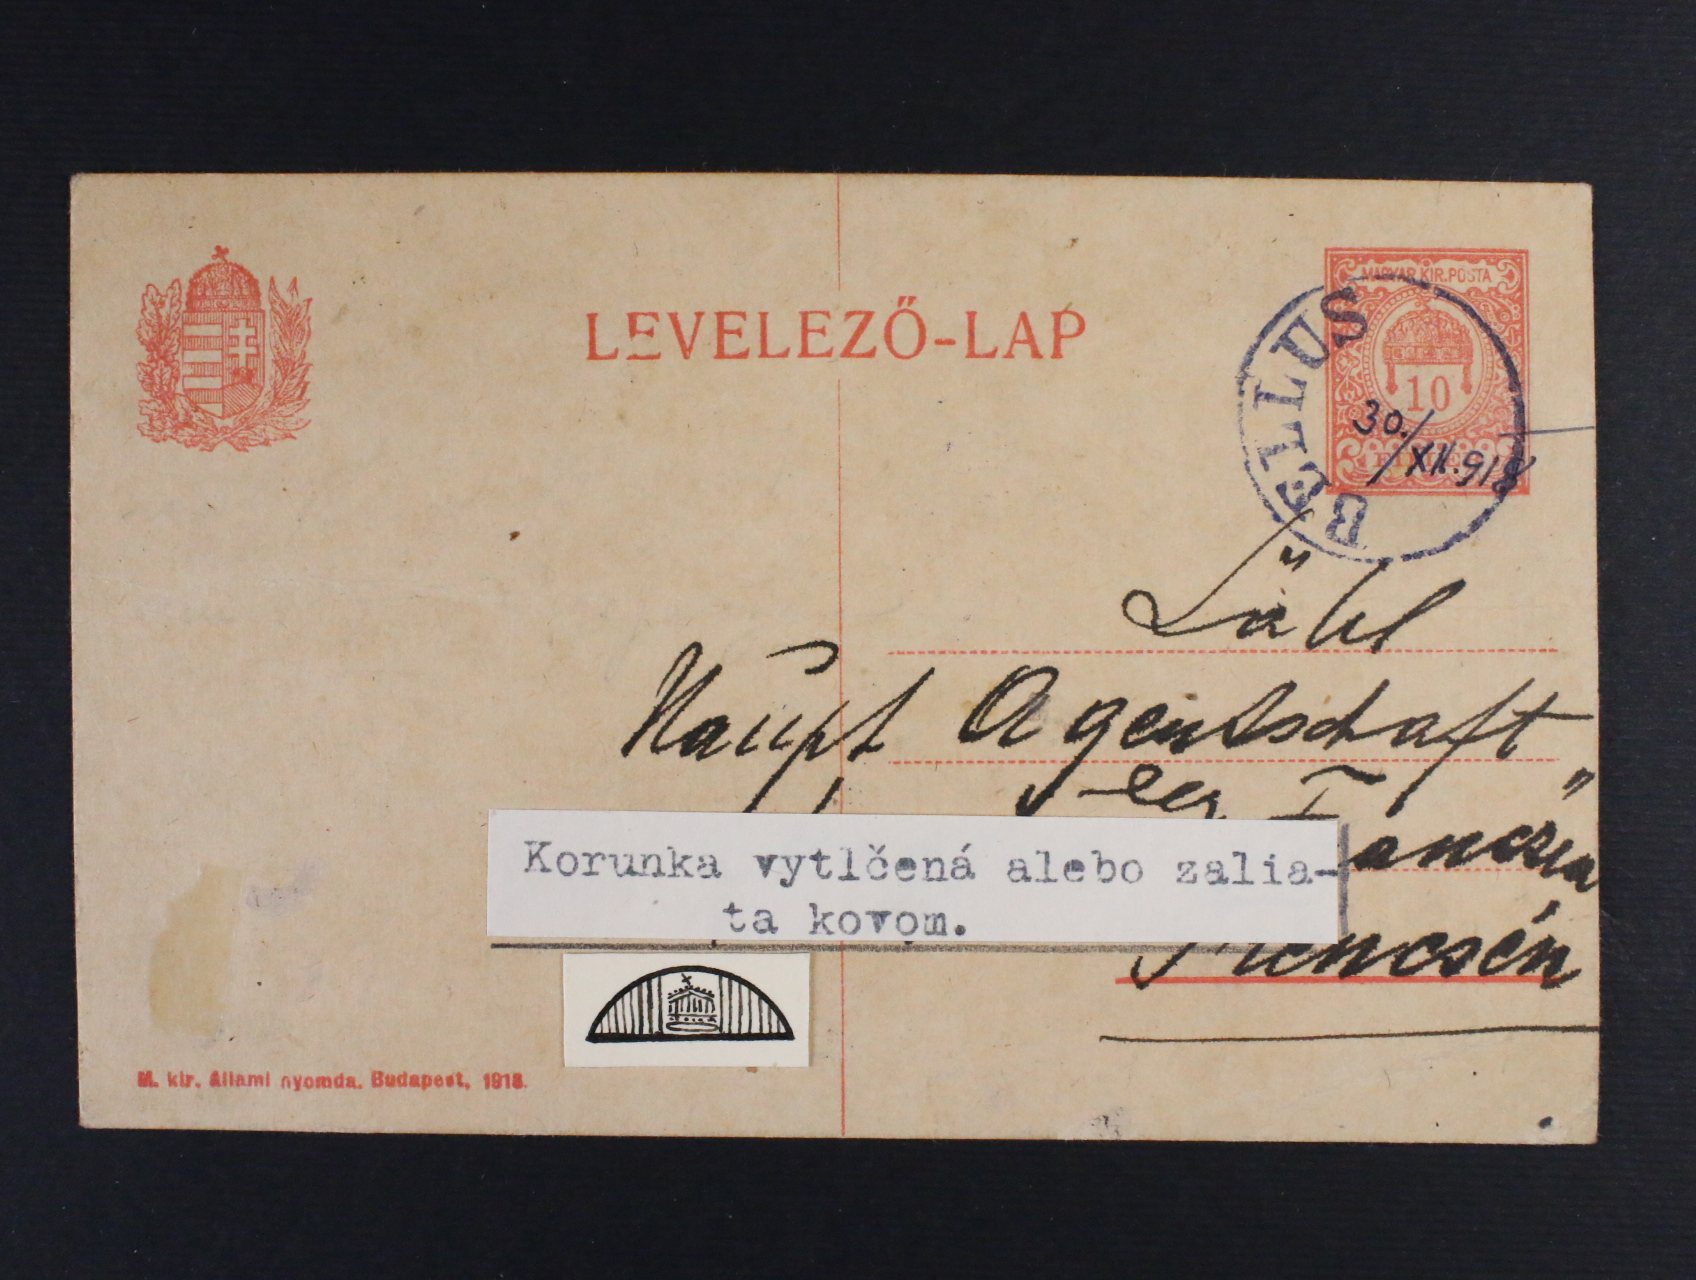 LEVELEZŐ-LAP
MAGYAR KIR. POSTA
10
FILLÉR
BELLUS
30./XII. 918
Löbl
Haupt Agentschaft
der Foncsiè
Korunka vytlčená alebo zalia-
ta kovom.
Trencsén
M. kir. állami nyomda. Budapest, 1918.